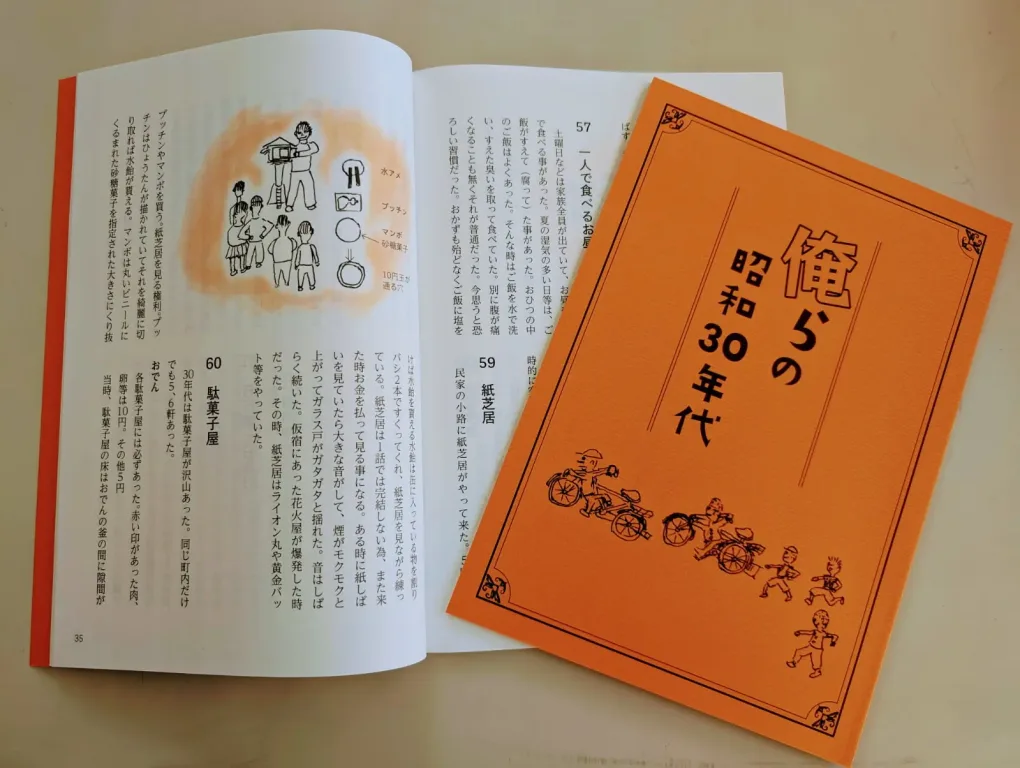 ばず
57 一人で食べるお昼
土曜日などは家族全員が出ていて、お昼
で食べる事があった。夏の湿気の多い日等は、ご
飯がすえて(腐って)た事があった。おひつの中
のご飯はよくあった。そんな時はご飯を水で洗
い、すえた臭いを取って食べていた。別に腹が痛
くなることも無くそれが普通だった。今思うと恐
ろしい習慣だった。おかずも殆どなくご飯に塩を
時的に
59 紙芝居
民家の小路に紙芝居がやって来た。
水アメ
プッチン
マンボ
砂糖菓子
10円玉が
通る穴
プッチンやマンボを買う。紙芝居を見る権利。プッ
チンはひょうたんが描かれていてそれを綺麗に切
り取れば水飴が買える。マンボは丸いビニールに
くるまれた砂糖菓子を指定された大きさにくり抜
けば水飴を買える水飴は缶に入っている物を割り
バシ2本ですくってくれ、紙芝居を見ながら練っ
ている。紙芝居は1話では完結しない為、また来
た時お金を払って見る事になる。ある時に紙しば
いを見ていたら大きな音がして、煙がモクモクと
上がってガラス戸がガタガタと揺れた。音はしば
らく続いた。仮宿にあった花火屋が爆発した時
だった。その時、紙芝居はライオン丸や黄金バッ
ト等をやっていた。
60 駄菓子屋
30年代は駄菓子屋が沢山あった。同じ町内だけ
でも5、6軒あった。
おでん
各駄菓子屋には必ずあった。赤い印があった肉、
卵等は10円。その他5円
当時、駄菓子屋の床はおでんの釜の間に隙間が
35
俺らの
昭和30年代